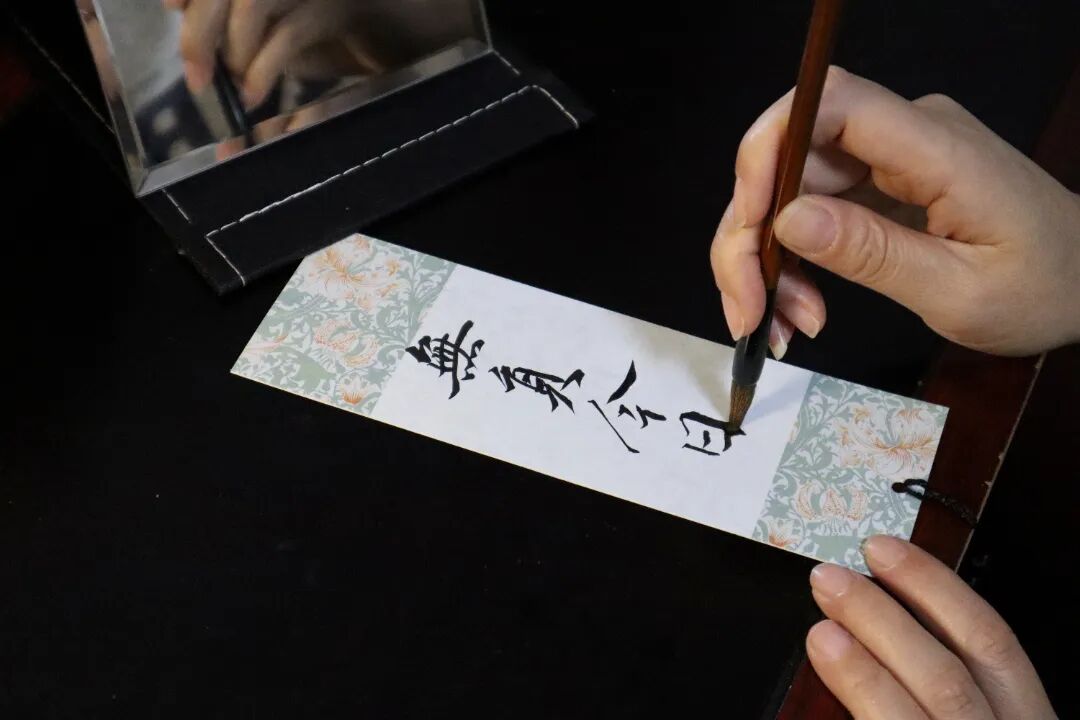 無負今日